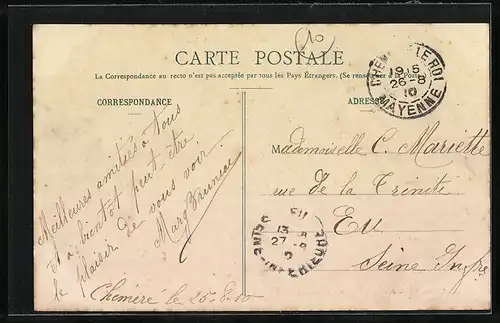 10
CARTE POSTALE
La Correspondance au recto n'est pas acceptée par tous les Pays Étrangers. (Se renseigner à la Poste
CORRESPONDANCE
Meilleures amitiés à tous
et à bientôt peut être
le plaisir de vous voir.
Marg
Chémeré le 25-8-10
ADRES
CHÉM LE ROI
19 15
26-8
10
MAYENNE
Mademoiselle C. Mariette
rue de la Trinité
Eu
Seine Infre
EU
13
27
SEINE-INFÉRIEURE